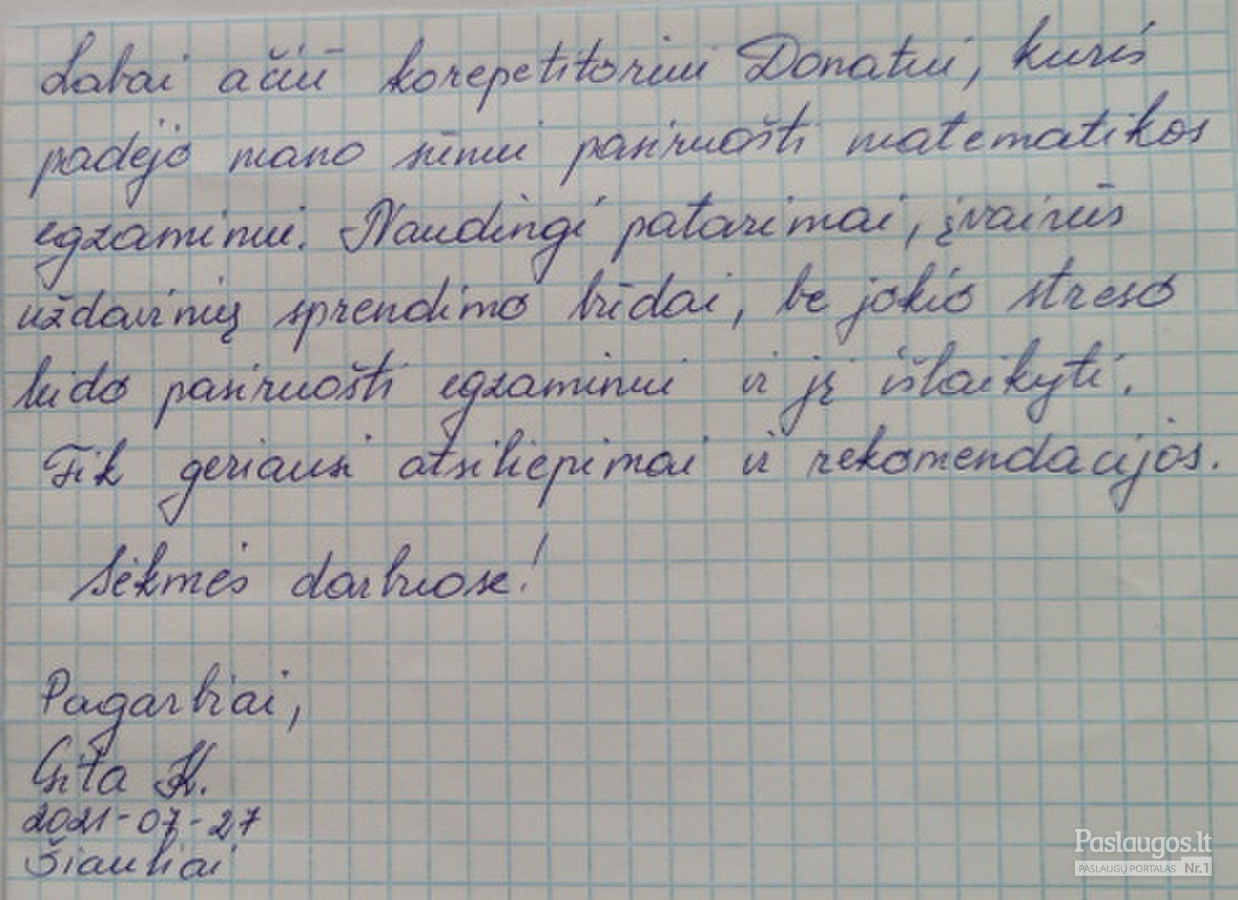 Labai ačiū korepetitoriui Donatui, kuris
padėjo mano sūnui pasiruošti matematikos
egzaminui. Naudingi patarimai, įvairūs
uždavinių sprendimo būdai, be jokio streso
leido pasiruošti egzaminui ir jį išlaikyti.
Tik geriausi atsiliepimai ir rekomendacijos.
Sėkmės darbuose!
Pagarbiai,
Gita K.
2021-07-27
Šiauliai
Paslaugos.lt
PASLAUGŲ PORTALAS Nr.1